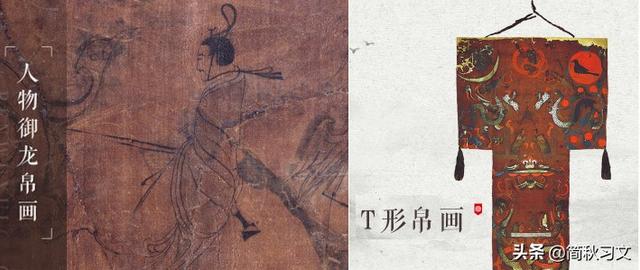 人物御龙帛画
T形帛画
头条 @简秋习文